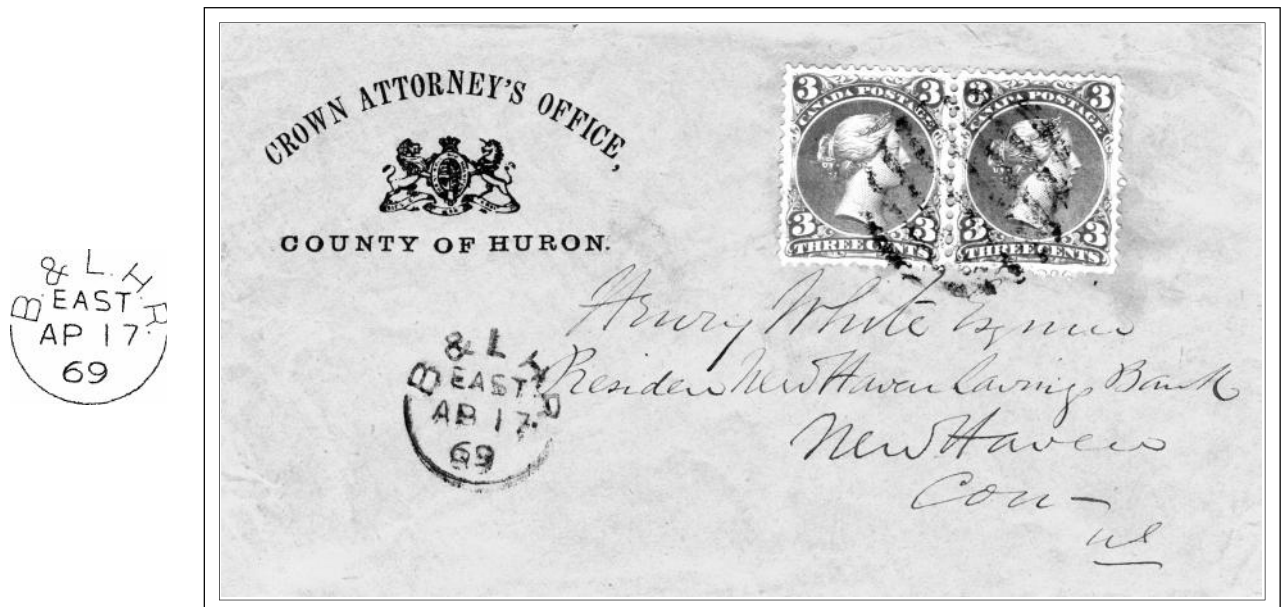 B. & L. H. R.
EAST
AP 17.
69
CROWN ATTORNEY'S OFFICE,
COUNTY OF HURON.
3 CANADA POSTAGE 3
3 THREE CENTS 3
3 CANADA POSTAGE 3
3 THREE CENTS 3
B & L H R
EAST.
AP 17.
69
Henry White Esquire
Presiden New Haven Savings Bank
New Haven
Con -
us